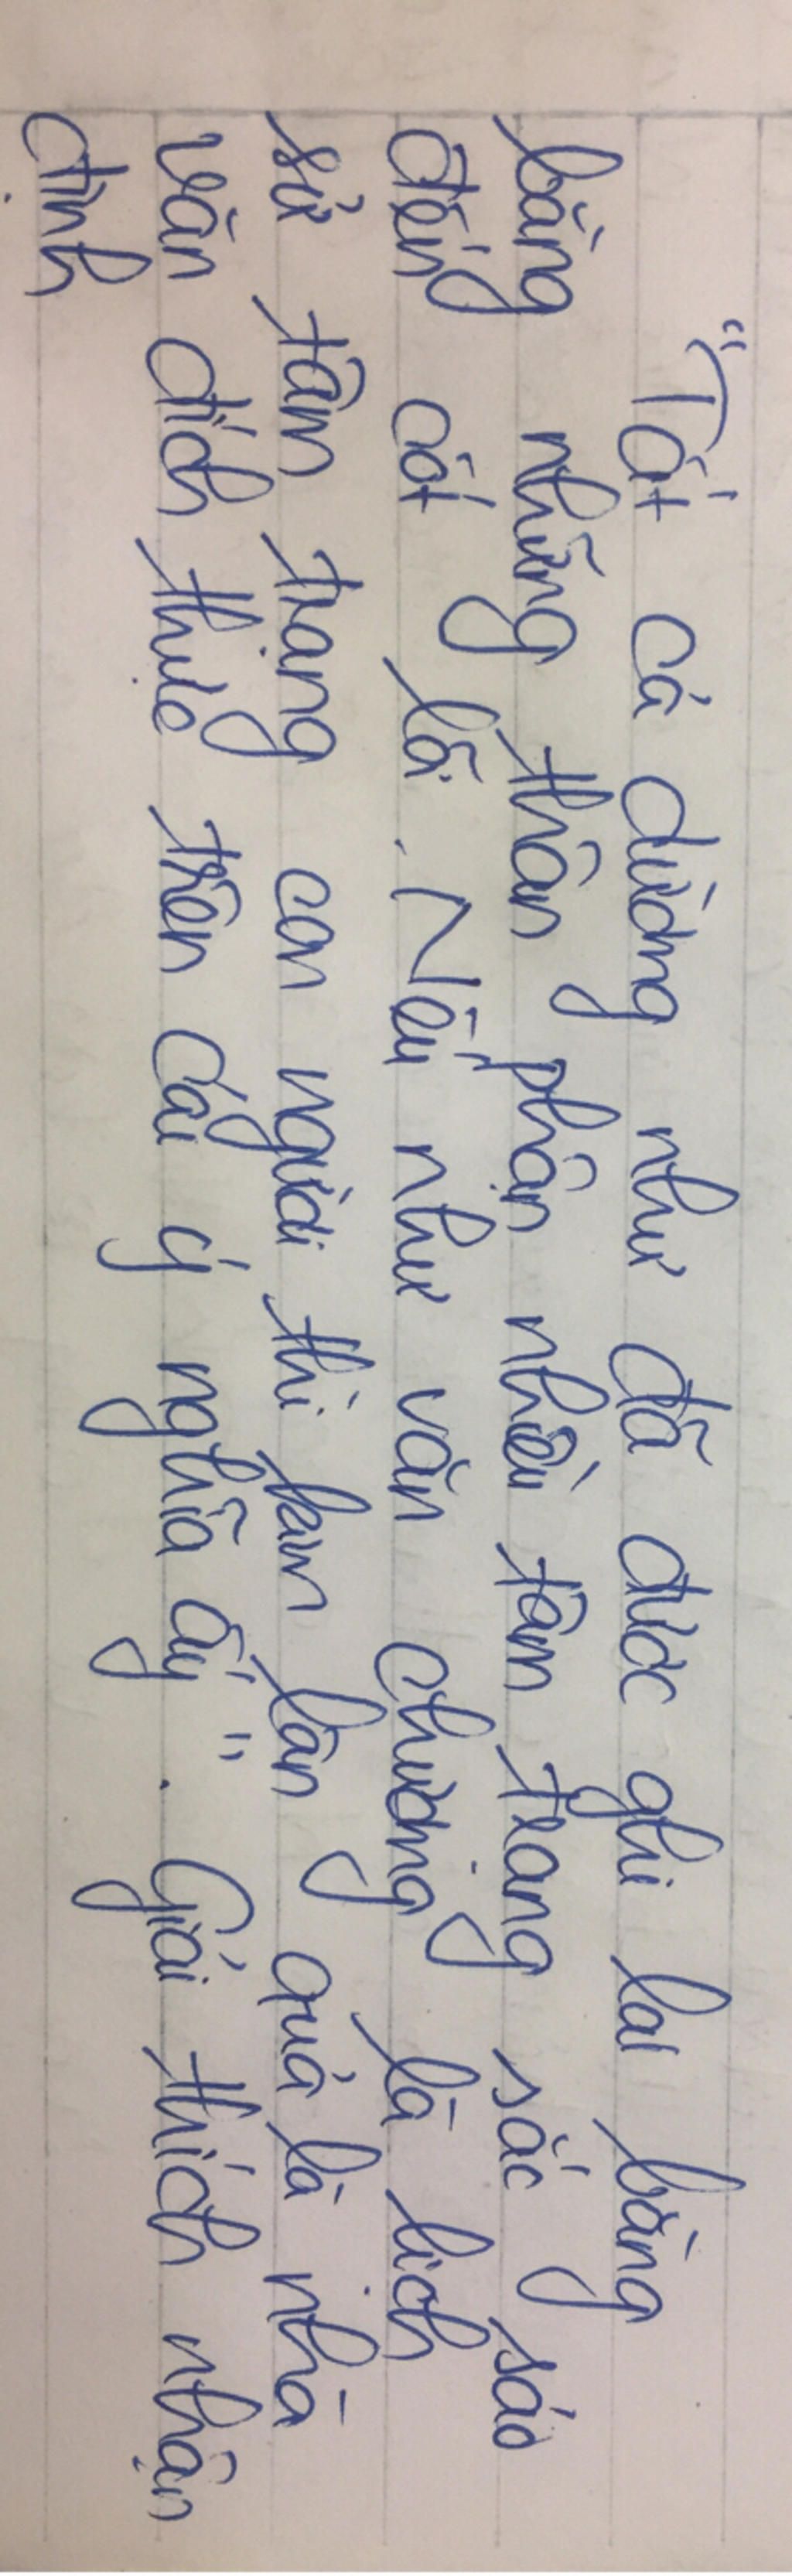 "Tất cả dường như đã được ghi lại bằng
bằng những thân phận nhiều tâm trạng sắc sảo
đến cốt lõi. Nếu như văn chương là lịch
sử tâm trạng con người thì Lam lân quả là nhà
văn đích thực trên cái ý nghĩa ấy". Giải thích nhận
định